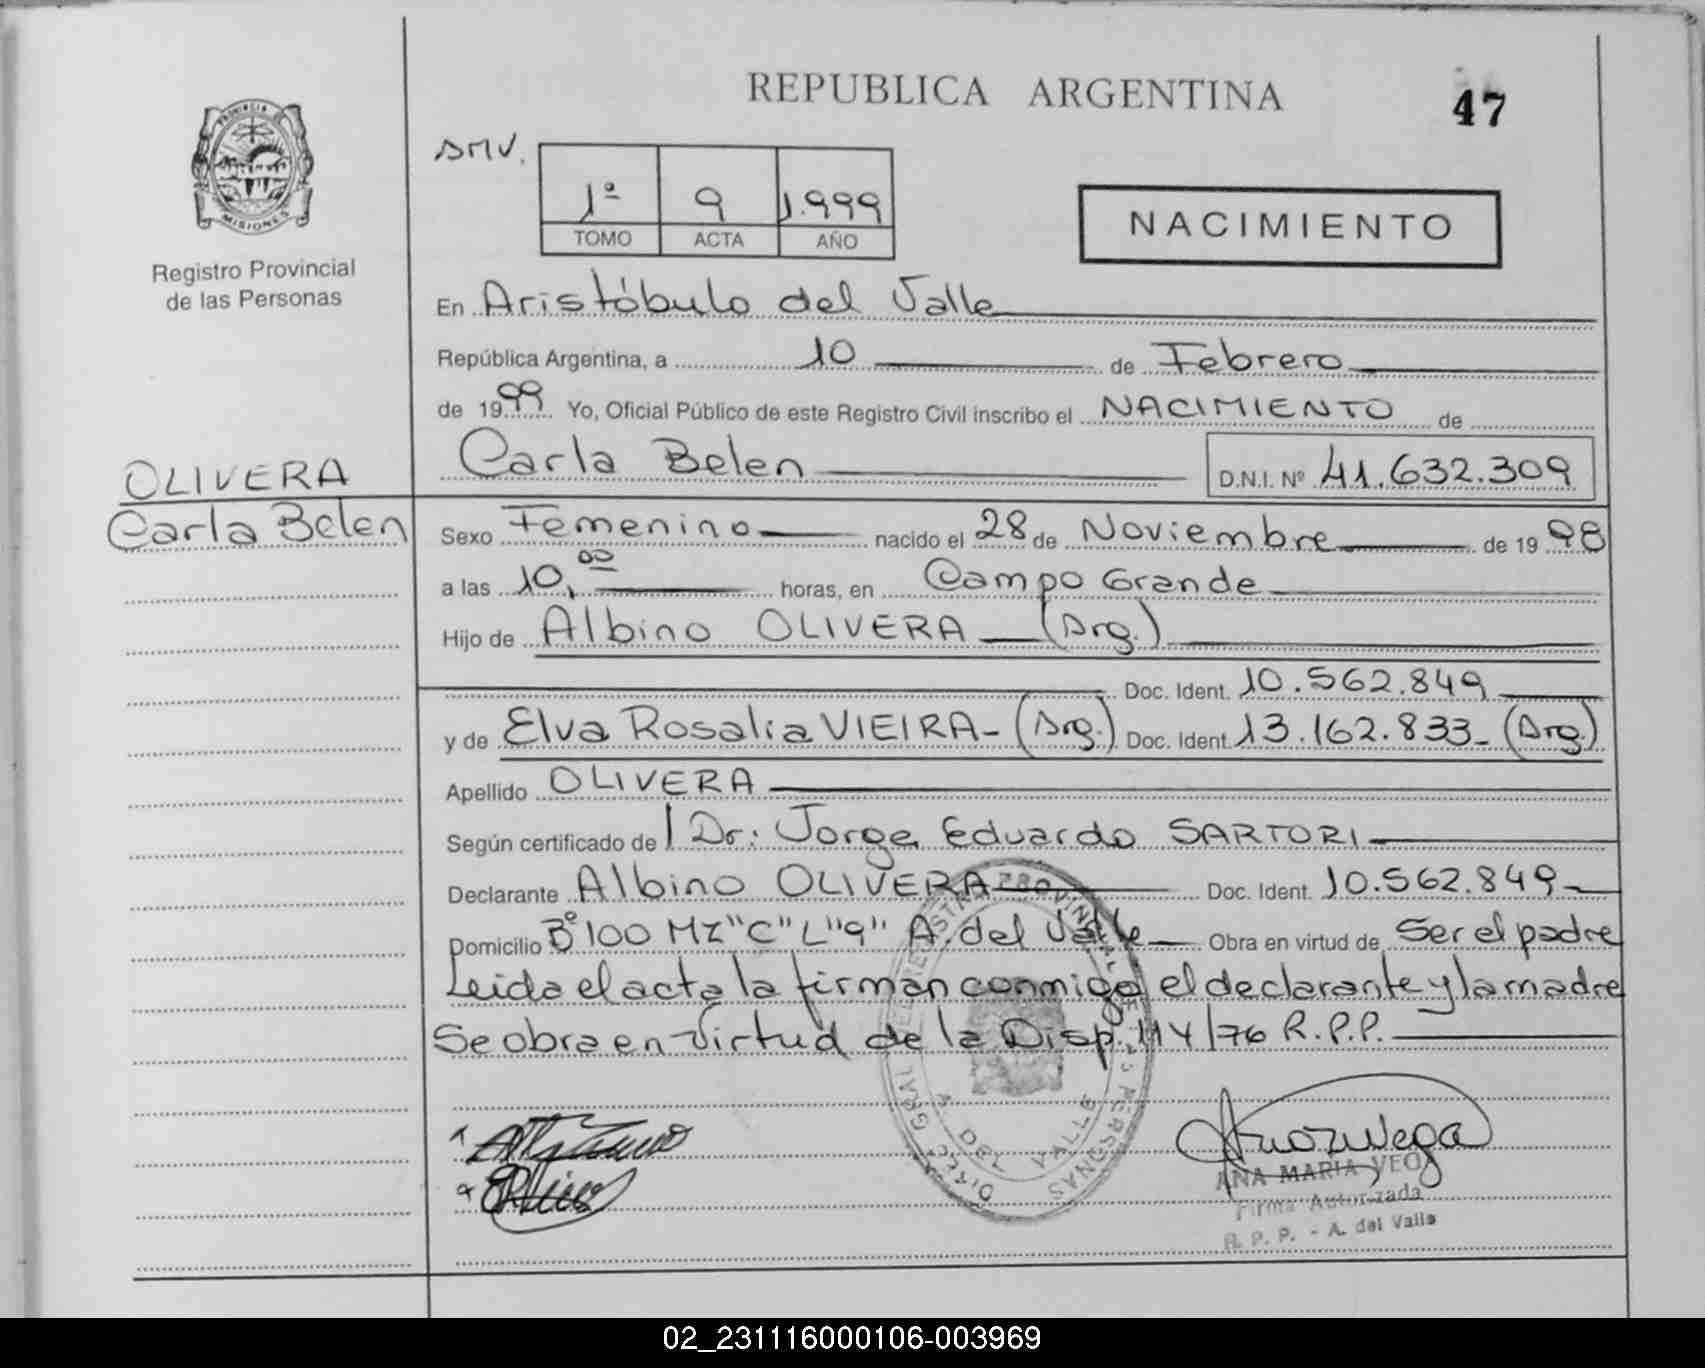 REPUBLICA ARGENTINA
47
PROVINCIA DE
MISIONES
Registro Provincial
de las Personas
1ª 9 1.999
TOMO ACTA AÑO
NACIMIENTO
En Aristóbulo del Valle
República Argentina, a 10 de Febrero
de 1999 Yo, Oficial Público de este Registro Civil inscribo el NACIMIENTO de
Carla Belen D.N.I. Nº 41.632.309
OLIVERA
Carla Belen
Sexo Femenino nacido el 28 de Noviembre de 1998
a las 10,00 horas, en Campo Grande
Hijo de Albino OLIVERA (Arg.)
Doc. Ident. 10.562.849
y de Elva Rosalia VIEIRA - (Arg.) Doc. Ident. 13.162.833 - (Arg.)
Apellido OLIVERA
Según certificado de Dr: Jorge Eduardo SARTORI
Declarante Albino OLIVERA Doc. Ident. 10.562.849
Domicilio Bº 100 MZ "C" L "9" A. del Valle Obra en virtud de Ser el padre
Leida el acta la firman conmigo el declarante y la madre
Se obra en virtud de la Disp. 114/76 R.P.P.
ANA MARIA
Firma Autorizada
R. P. P. - A. del Valle
02_231116000106-003969